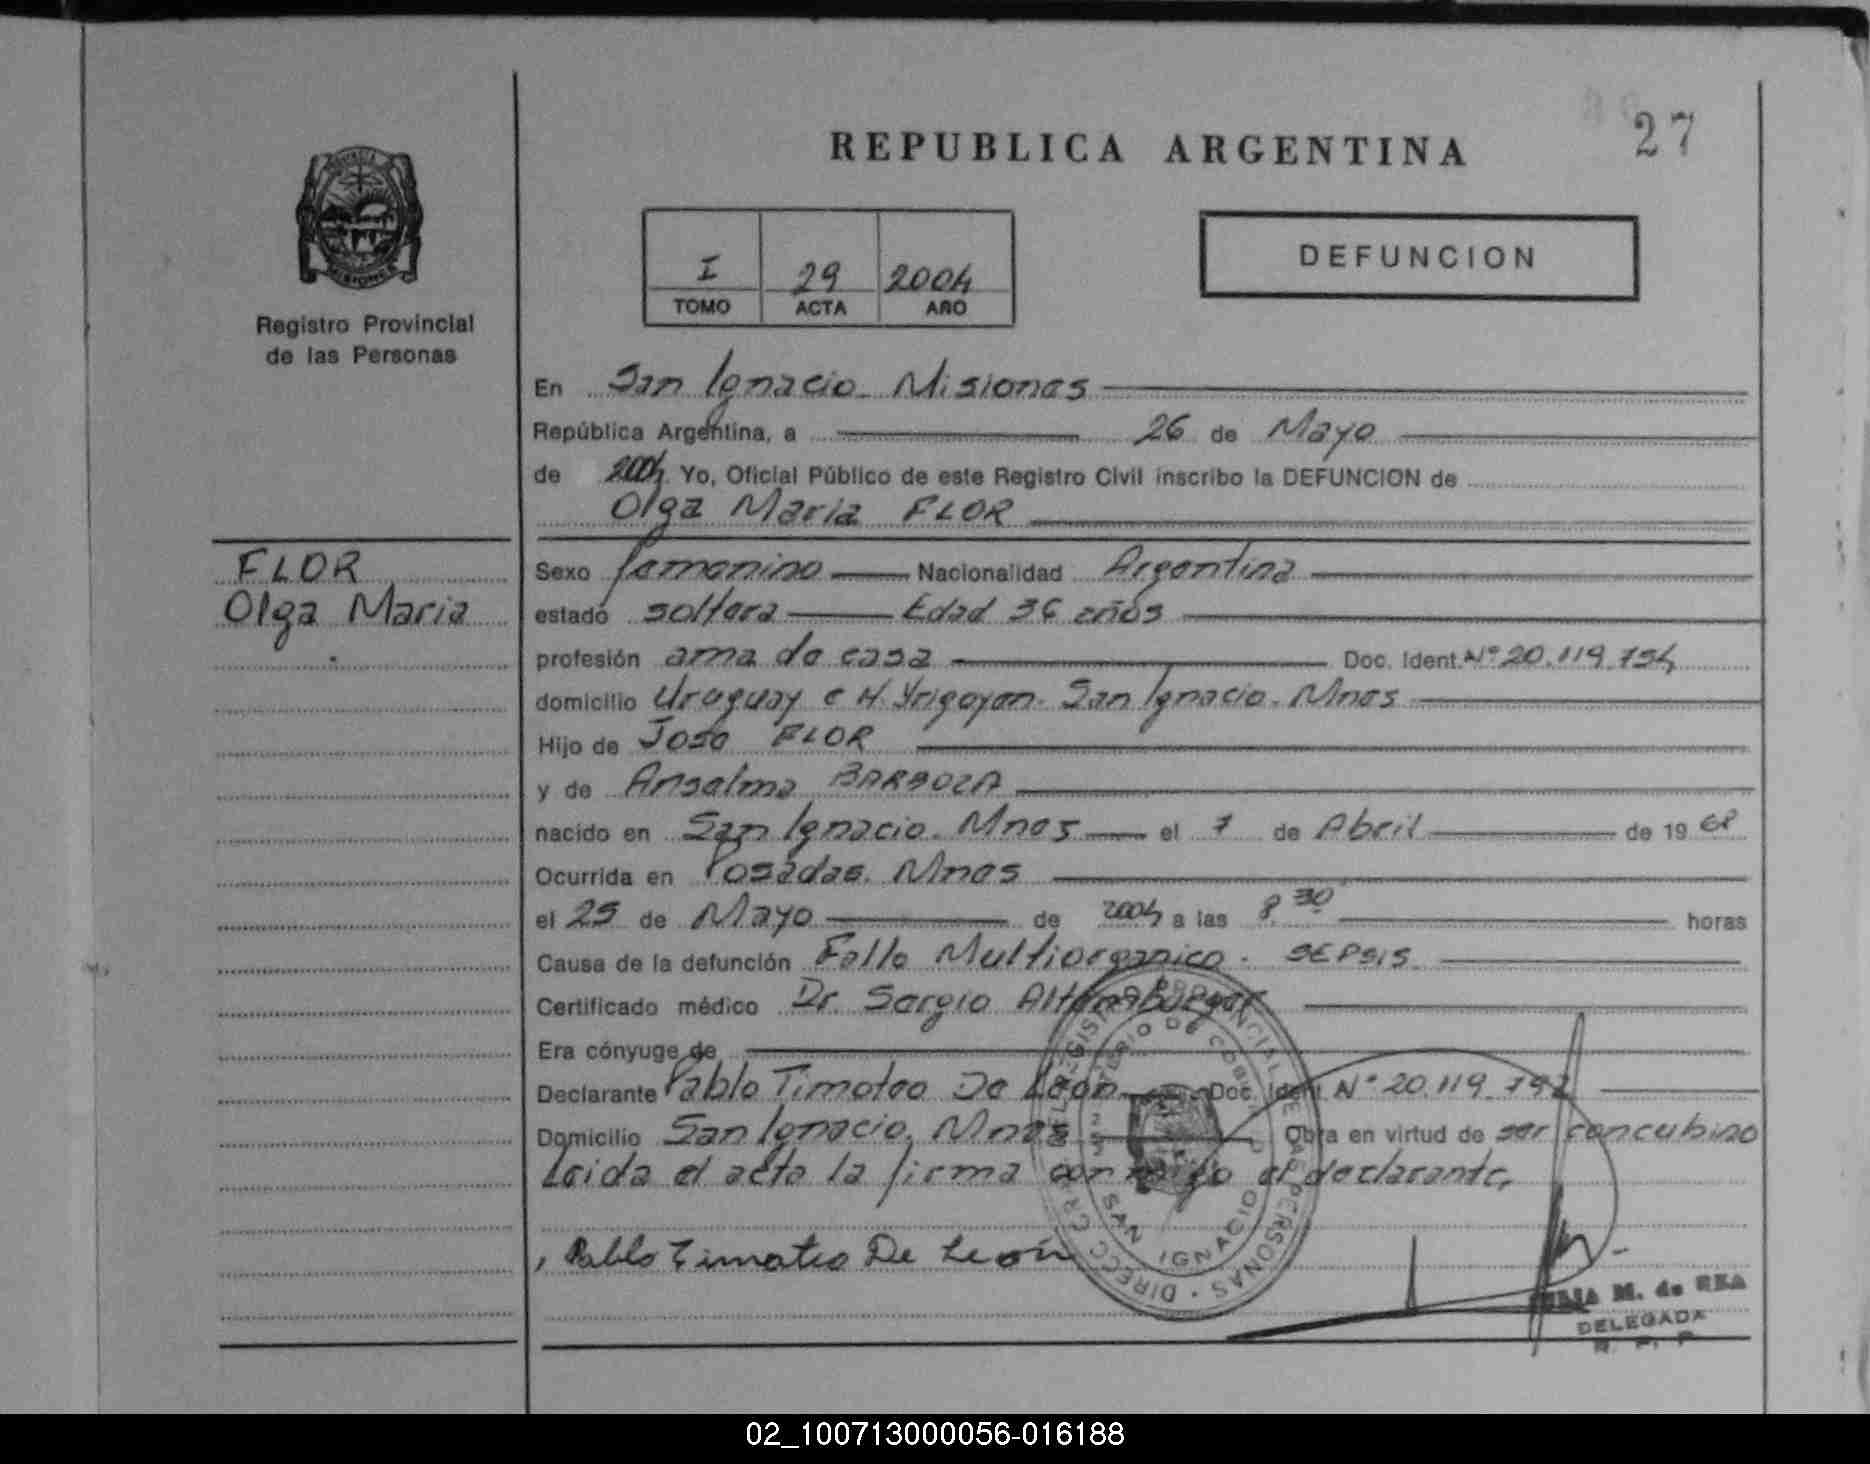 27
REPUBLICA ARGENTINA
PROVINCIA
MISIONES
I 29 2004
TOMO ACTA AÑO
DEFUNCION
Registro Provincial
de las Personas
En San Ignacio. Misiones
República Argentina, a 26 de Mayo
de 2004 Yo, Oficial Público de este Registro Civil inscribo la DEFUNCION de
Olga Maria FLOR
FLOR
Olga Maria
Sexo femenino Nacionalidad Argentina
estado soltera Edad 36 años
profesión ama de casa Doc. Ident. Nº 20.119.754
domicilio Uruguay e H. Yrigoyen. San Ignacio. Mnes
Hijo de Jose FLOR
y de Anselma BARBOZA
nacido en San Ignacio. Mnes el 7 de Abril de 19 68
Ocurrida en Posadas. Mnes
el 25 de Mayo de 2004 a las 8.30 horas
Causa de la defunción Fallo Multiorganico. SEPSIS
Certificado médico Dr. Sergio
Era cónyuge de
Declarante Pablo Timoteo De Leon Doc. Ident Nº 20.119.792
Domicilio San Ignacio. Mnes Obra en virtud de ser concubino
Leida el acta la firma conmigo el declarante,
Pablo Timoteo De León
SAN IGNACIO
M. de REA
DELEGADA
R. P. P.
02_100713000056-016188